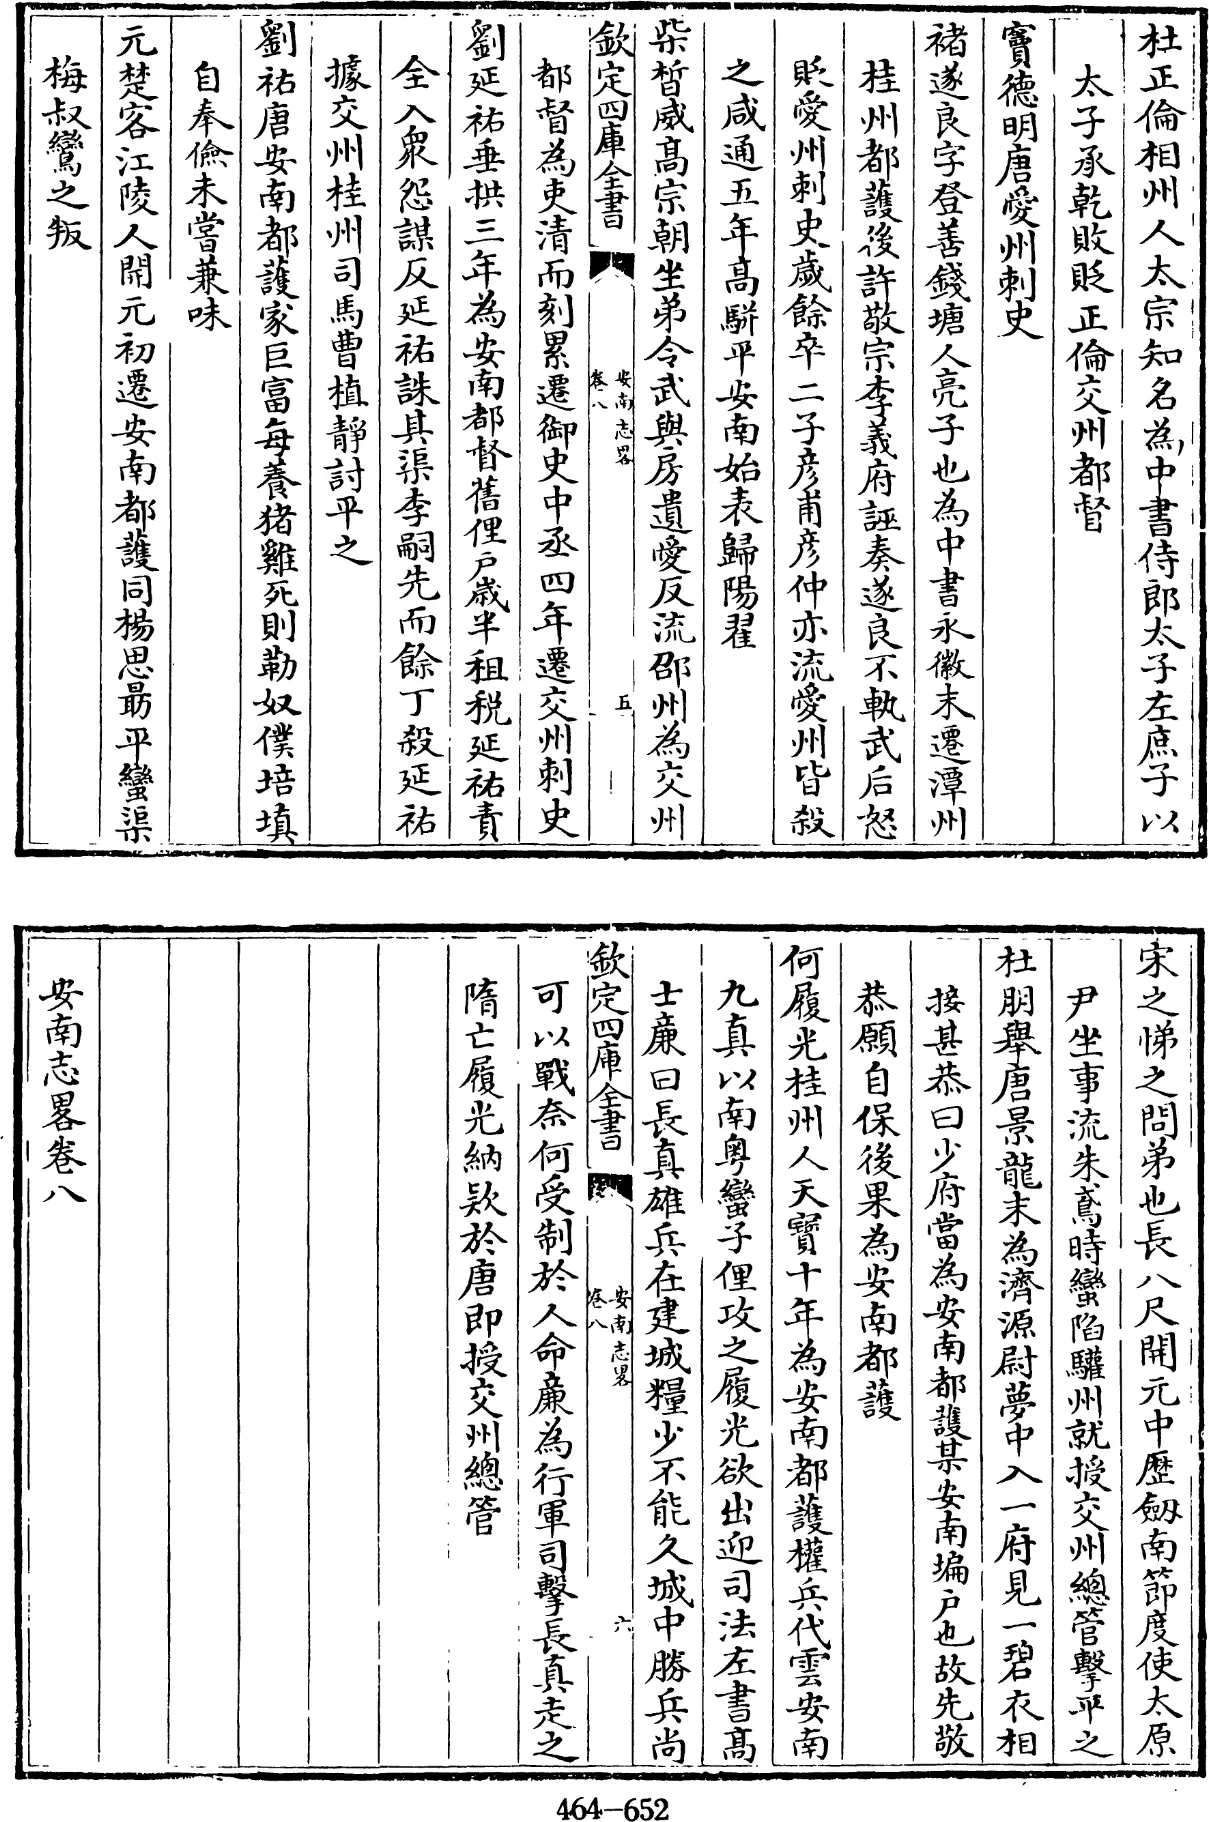 杜正倫相州人太宗知名為中書侍郎太子左庶子以
太子承乾敗貶正倫交州都督
竇德明唐愛州刺史
褚遂良字登善錢塘人亮子也為中書永徽末遷潭州
桂州都護後許敬宗李義府誣奏遂良不軌武后怒
貶愛州刺史歲餘卒二子彦甫彦仲亦流愛州皆殺
之咸通五年高駢平安南始表歸陽翟
柴皙威高宗朝坐弟令武與房遺愛反流邵州為交州
欽定四庫全書
安南志畧
卷八
五
都督為吏清而刻累遷御史中丞四年遷交州刺史
劉延祐垂拱三年為安南都督舊俚户歲半租税延祐責
全入衆怨謀反延祐誅其渠李嗣先而餘丁殺延祐
據交州桂州司馬曹植靜討平之
劉祐唐安南都護家巨富每養猪雞死則勒奴僕培填
自奉儉未嘗兼味
元楚客江陵人開元初遷安南都護同楊思勗平蠻渠
梅叔鸞之叛
宋之悌之問弟也長八尺開元中歷劔南節度使太原
尹坐事流朱鳶時蠻陷驩州就授交州總管擊平之
杜朋舉唐景龍末為濟源尉夢中入一府見一碧衣相
接甚恭曰少府當為安南都護某安南編户也故先敬
恭願自保後果為安南都護
何履光桂州人天寶十年為安南都護權兵代雲安南
九真以南粤蠻子俚攻之履光欲出迎司法左書高
士廉曰長真雄兵在建城糧少不能久城中勝兵尚
欽定四庫全書
安南志畧
卷八
六
可以戰奈何受制於人命廉為行軍司擊長真走之
隋亡履光納欵於唐即授交州總管
安南志畧卷八
464-652